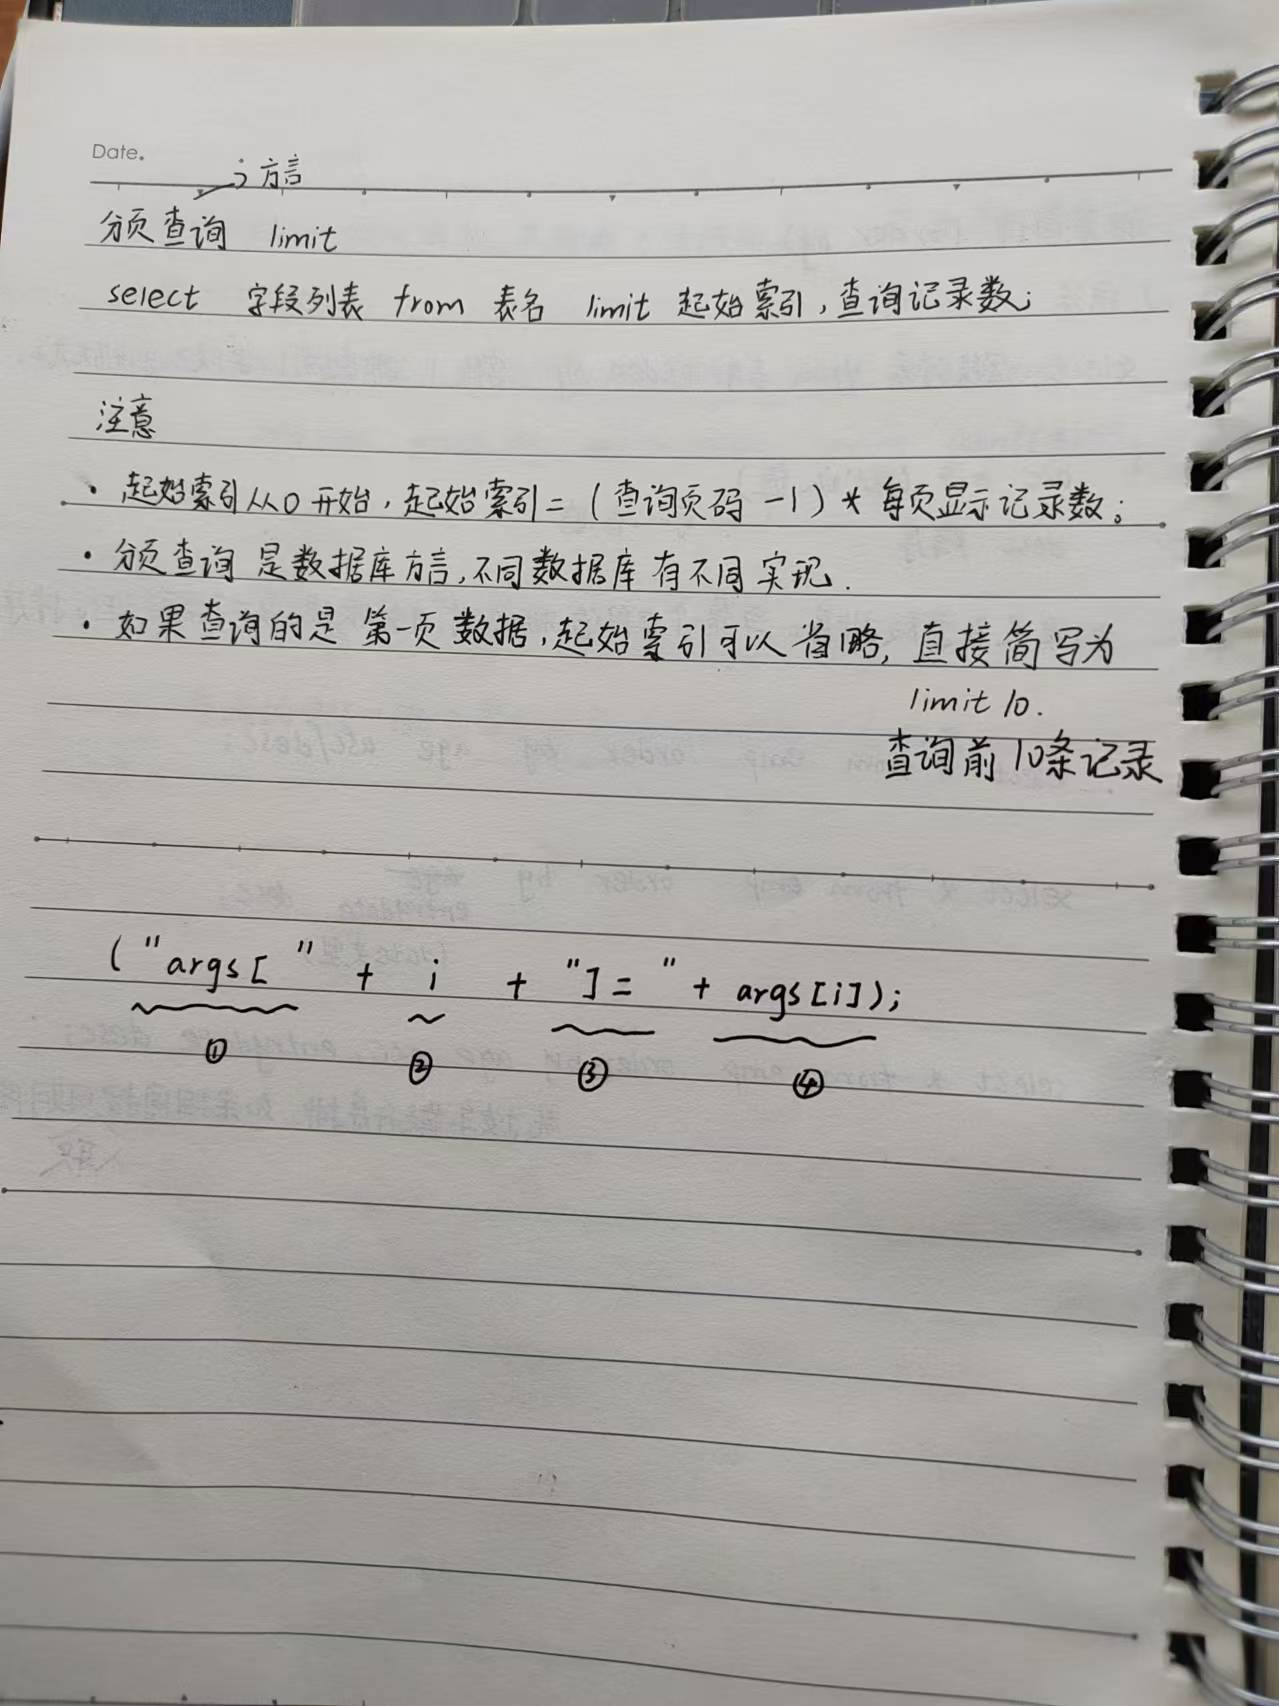 Date.
方言
分页查询 limit
select 字段列表 from 表名 limit 起始索引,查询记录数;
注意
· 起始索引从0开始,起始索引=(查询页码-1)*每页显示记录数;
· 分页查询是数据库方言,不同数据库有不同实现.
· 如果查询的是第一页数据,起始索引可以省略,直接简写为
limit 10.
查询前10条记录
("args[ " + i + "]= " + args[i]);
① ② ③ ④